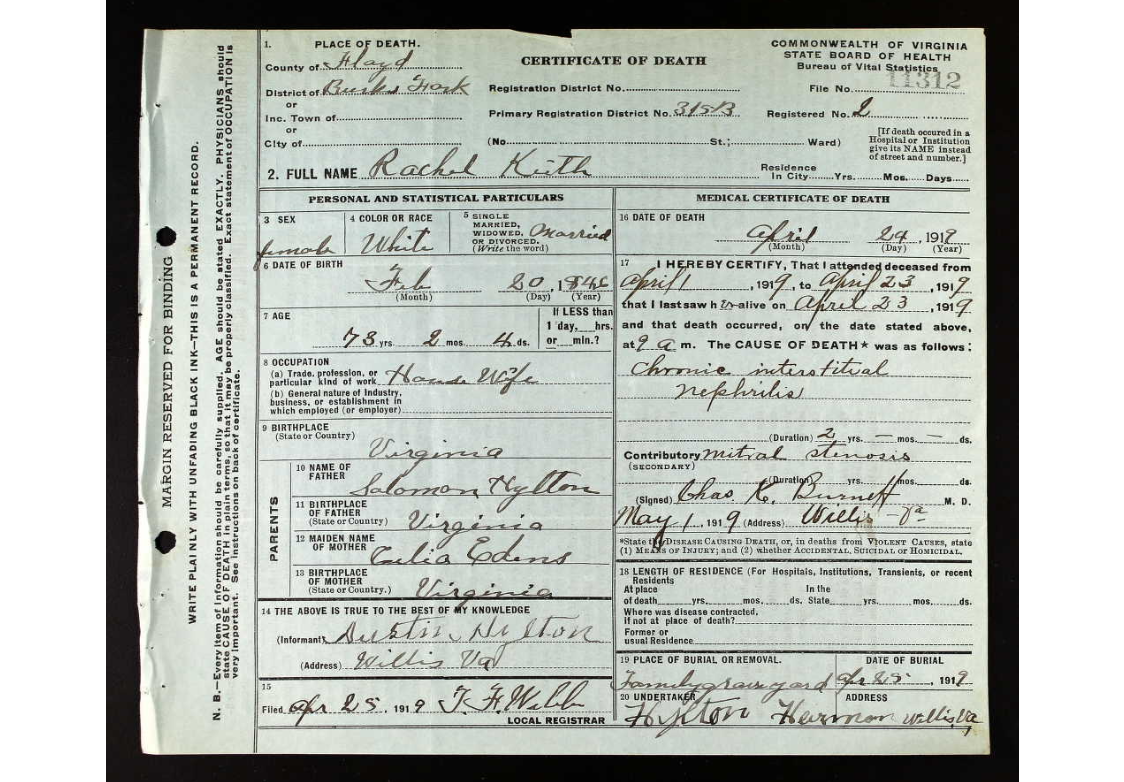 MARGIN RESERVED FOR BINDING
WRITE PLAINLY WITH UNFADING BLACK INK—THIS IS A PERMANENT RECORD.
N. B.—Every item of information should be carefully supplied. AGE should be stated EXACTLY. PHYSICIANS should
state CAUSE OF DEATH in plain terms, so that it may be properly classified. Exact statement of OCCUPATION is
very important. See instructions on back of certificate.
1. PLACE OF DEATH.
County of Floyd
District of Burks Fork
or
Inc. Town of
or
City of
CERTIFICATE OF DEATH
Registration District No.
Primary Registration District No. 315B
(No. St.; Ward)
COMMONWEALTH OF VIRGINIA
STATE BOARD OF HEALTH
Bureau of Vital Statistics
File No. 11312
Registered No.
[If death occured in a
Hospital or Institution
give its NAME instead
of street and number.]
2. FULL NAME Rachel Keith
Residence
In City Yrs. Mos. Days
PERSONAL AND STATISTICAL PARTICULARS
3 SEX
female
4 COLOR OR RACE
White
5 SINGLE
MARRIED,
WIDOWED,
OR DIVORCED.
(Write the word)
Married
6 DATE OF BIRTH
Feb 20, 1846
(Month) (Day) (Year)
7 AGE
73 yrs. 2 mos. 4 ds.
If LESS than
1 day, hrs.
or min.?
8 OCCUPATION
(a) Trade, profession, or
particular kind of work House Wife
(b) General nature of Industry,
business, or establishment in
which employed (or employer)
9 BIRTHPLACE
(State or Country)
Virginia
PARENTS
10 NAME OF
FATHER
Solomon Hylton
11 BIRTHPLACE
OF FATHER
(State or Country)
Virginia
12 MAIDEN NAME
OF MOTHER
Celia Edens
13 BIRTHPLACE
OF MOTHER
(State or Country.)
Virginia
14 THE ABOVE IS TRUE TO THE BEST OF MY KNOWLEDGE
(Informant) Austin Hylton
(Address) Willis Va
15
Filed Apr 25, 1919 T. F. Webb
LOCAL REGISTRAR
MEDICAL CERTIFICATE OF DEATH
16 DATE OF DEATH
April 24, 1919
(Month) (Day) (Year)
17 I HEREBY CERTIFY, That I attended deceased from
April 1, 1919, to April 23, 1919
that I last saw her alive on April 23, 1919
and that death occurred, on the date stated above,
at 9 a m. The CAUSE OF DEATH* was as follows:
Chronic interstitial
nephritis
(Duration) 2 yrs. — mos. — ds.
Contributory mitral stenosis
(SECONDARY)
(Duration) yrs. mos. ds.
(Signed) Chas K. Burnett M. D.
May 1, 1919 (Address) Willis Va
*State the DISEASE CAUSING DEATH, or, in deaths from VIOLENT CAUSES, state
(1) MEANS OF INJURY; and (2) whether ACCIDENTAL, SUICIDAL or HOMICIDAL.
18 LENGTH OF RESIDENCE (For Hospitals, Institutions, Transients, or recent
Residents
At place In the
of death yrs. mos. ds. State yrs. mos. ds.
Where was disease contracted,
if not at place of death?
Former or
usual Residence
19 PLACE OF BURIAL OR REMOVAL.
Family graveyard
DATE OF BURIAL
Apr 25, 1919
20 UNDERTAKER
Hylton Harmon
ADDRESS
Willis, Va